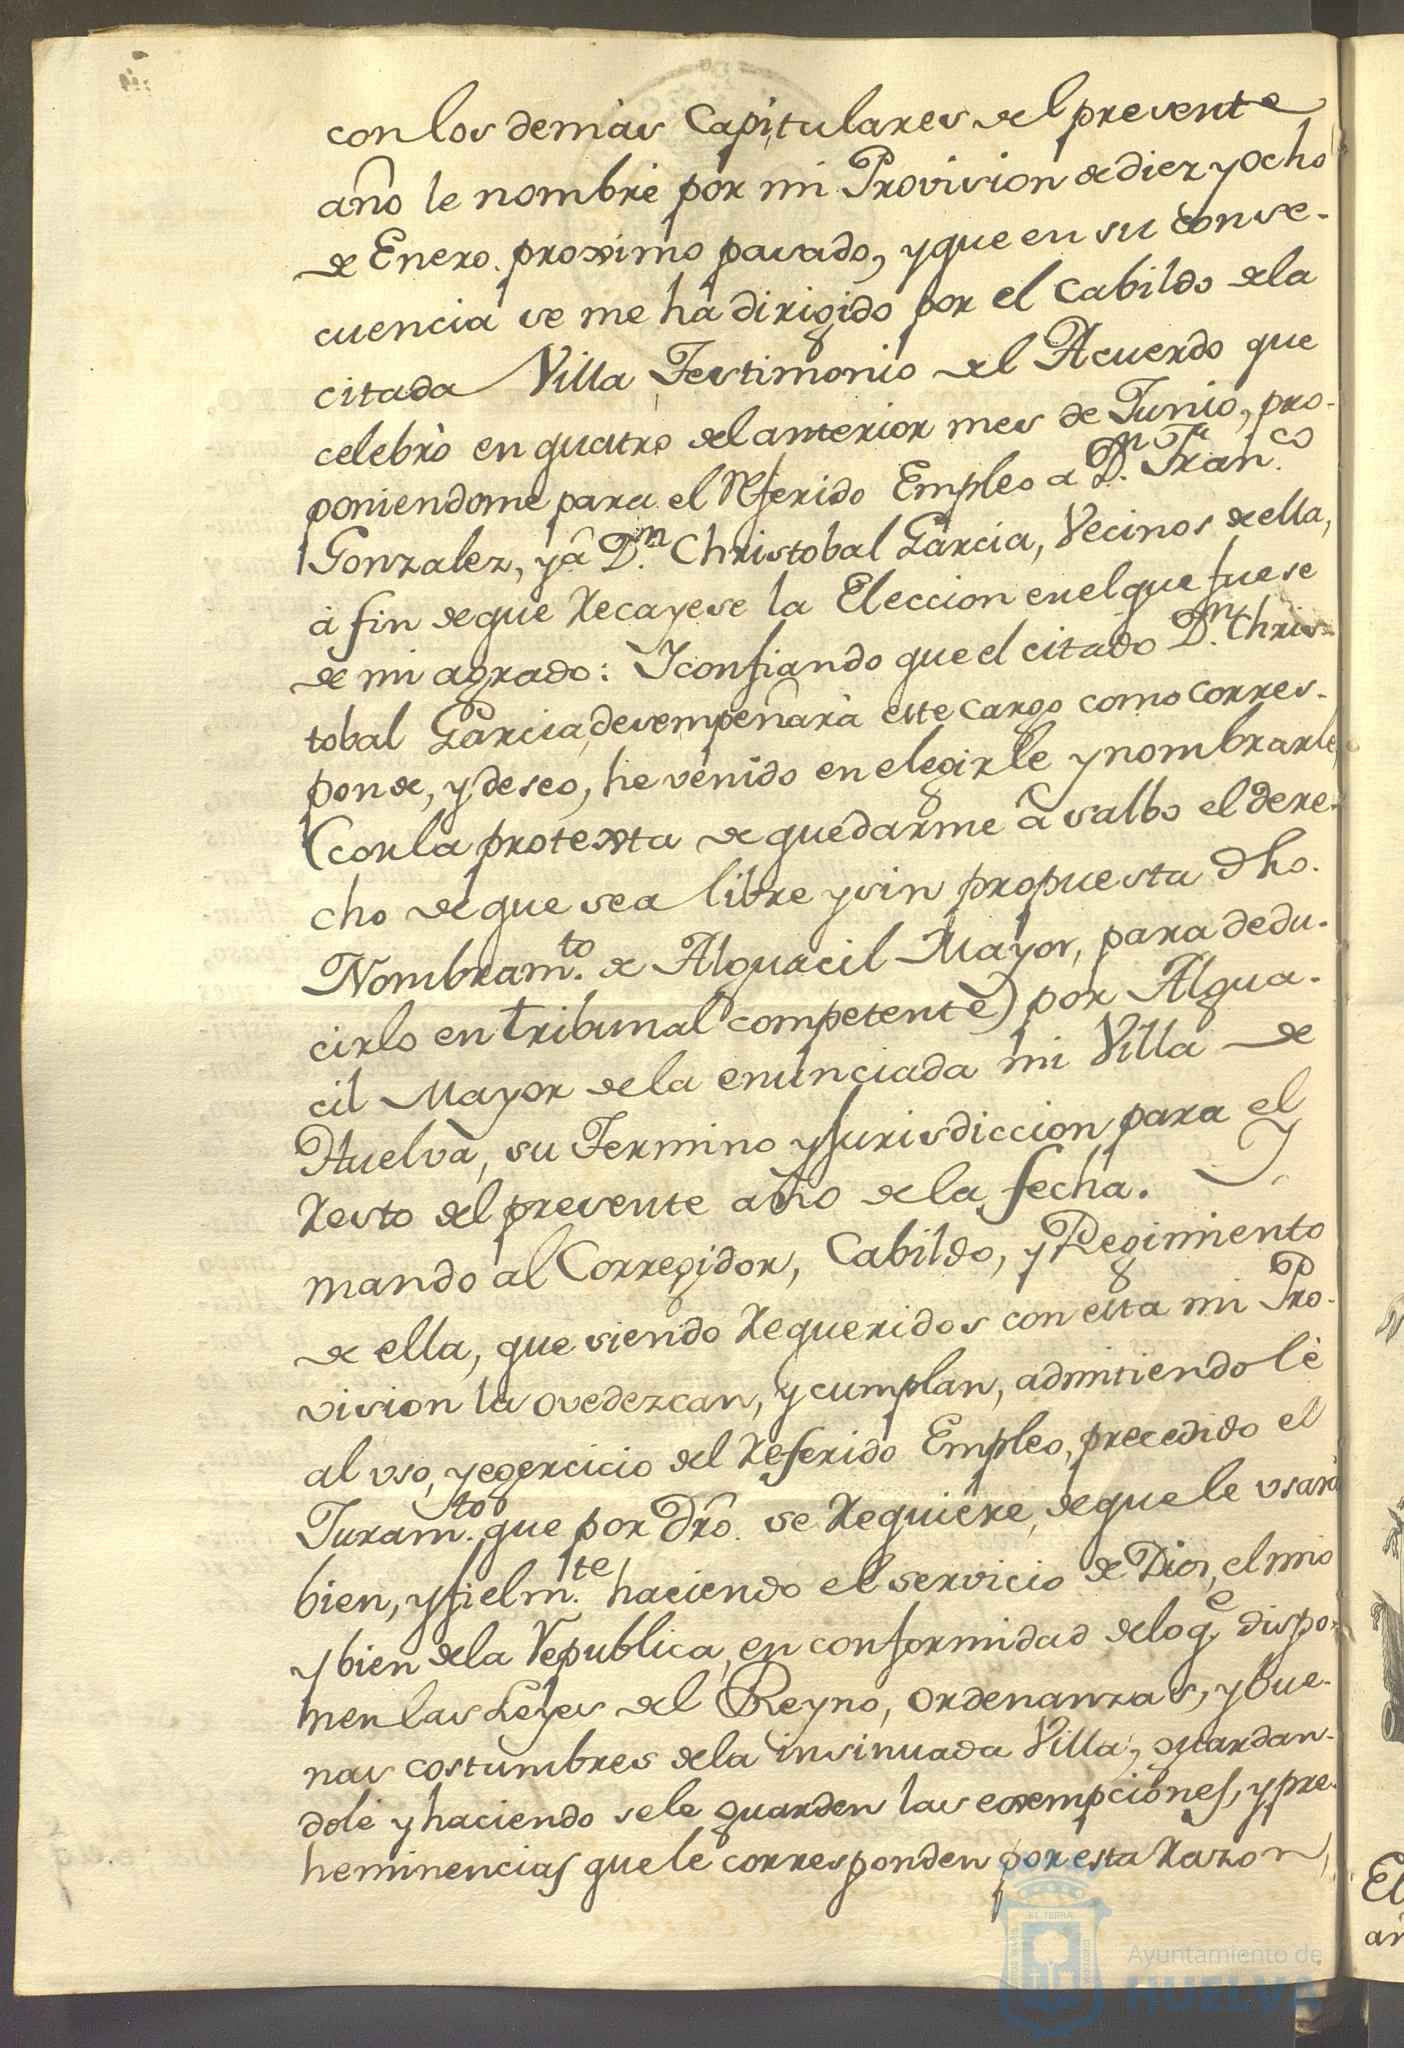 con los demás Capitulares del presente
año le nombré por mi Provision de diez y ocho
de Enero proximo pasado, y que en su conse-
cuencia se me ha dirigido por el Cabildo de la
citada Villa Testimonio del Acuerdo que
celebró en quatro del anterior mes de Junio, pro-
poniendome para el Referido Empleo a D.n Fran.co
Gonzalez, y à D.n Christobal Garcia, Vecinos de ella,
à fin de que Recayese la Eleccion en el que fuese
de mi agrado: Y confiando que el citado D.n Chris-
tobal Garcia, desempeñarà este cargo como corres-
ponde, y deseo, he venido en elegirle y nombrarle,
(con la protexta de quedarme à salbo el dere-
cho de que sea libre y sin propuesta dho.
Nombram.to de Alguacil Mayor, para dedu-
cirlo en tribunal competente) por Algua-
cil Mayor de la enunciada mi Villa de
Huelva, su Termino y Jurisdiccion para el
Resto del presente año de la fecha. Y
mando al Corregidor, Cabildo, y Regimiento
de ella, que siendo Requeridos con esta mi Pro-
vision la ovedezcan, y cumplan, admitiendole
al uso, y egercicio del Referido Empleo, precedido el
Juram.to que por dro. se Requiere, de que le usarà
bien, y fielm.te haciendo el servicio de Dios, el mio
y bien de la Republica, en conformidad de lo q.e dispo-
nen las Leyes del Reyno, ordenanzas, y bue-
nas costumbres de la insinuada Villa, guardan-
dole y haciendo se le guarden las exempciones, y pre-
heminencias que le corresponden por esta Razon,
El
ET TERRA
Ayuntamiento de
HUELVA